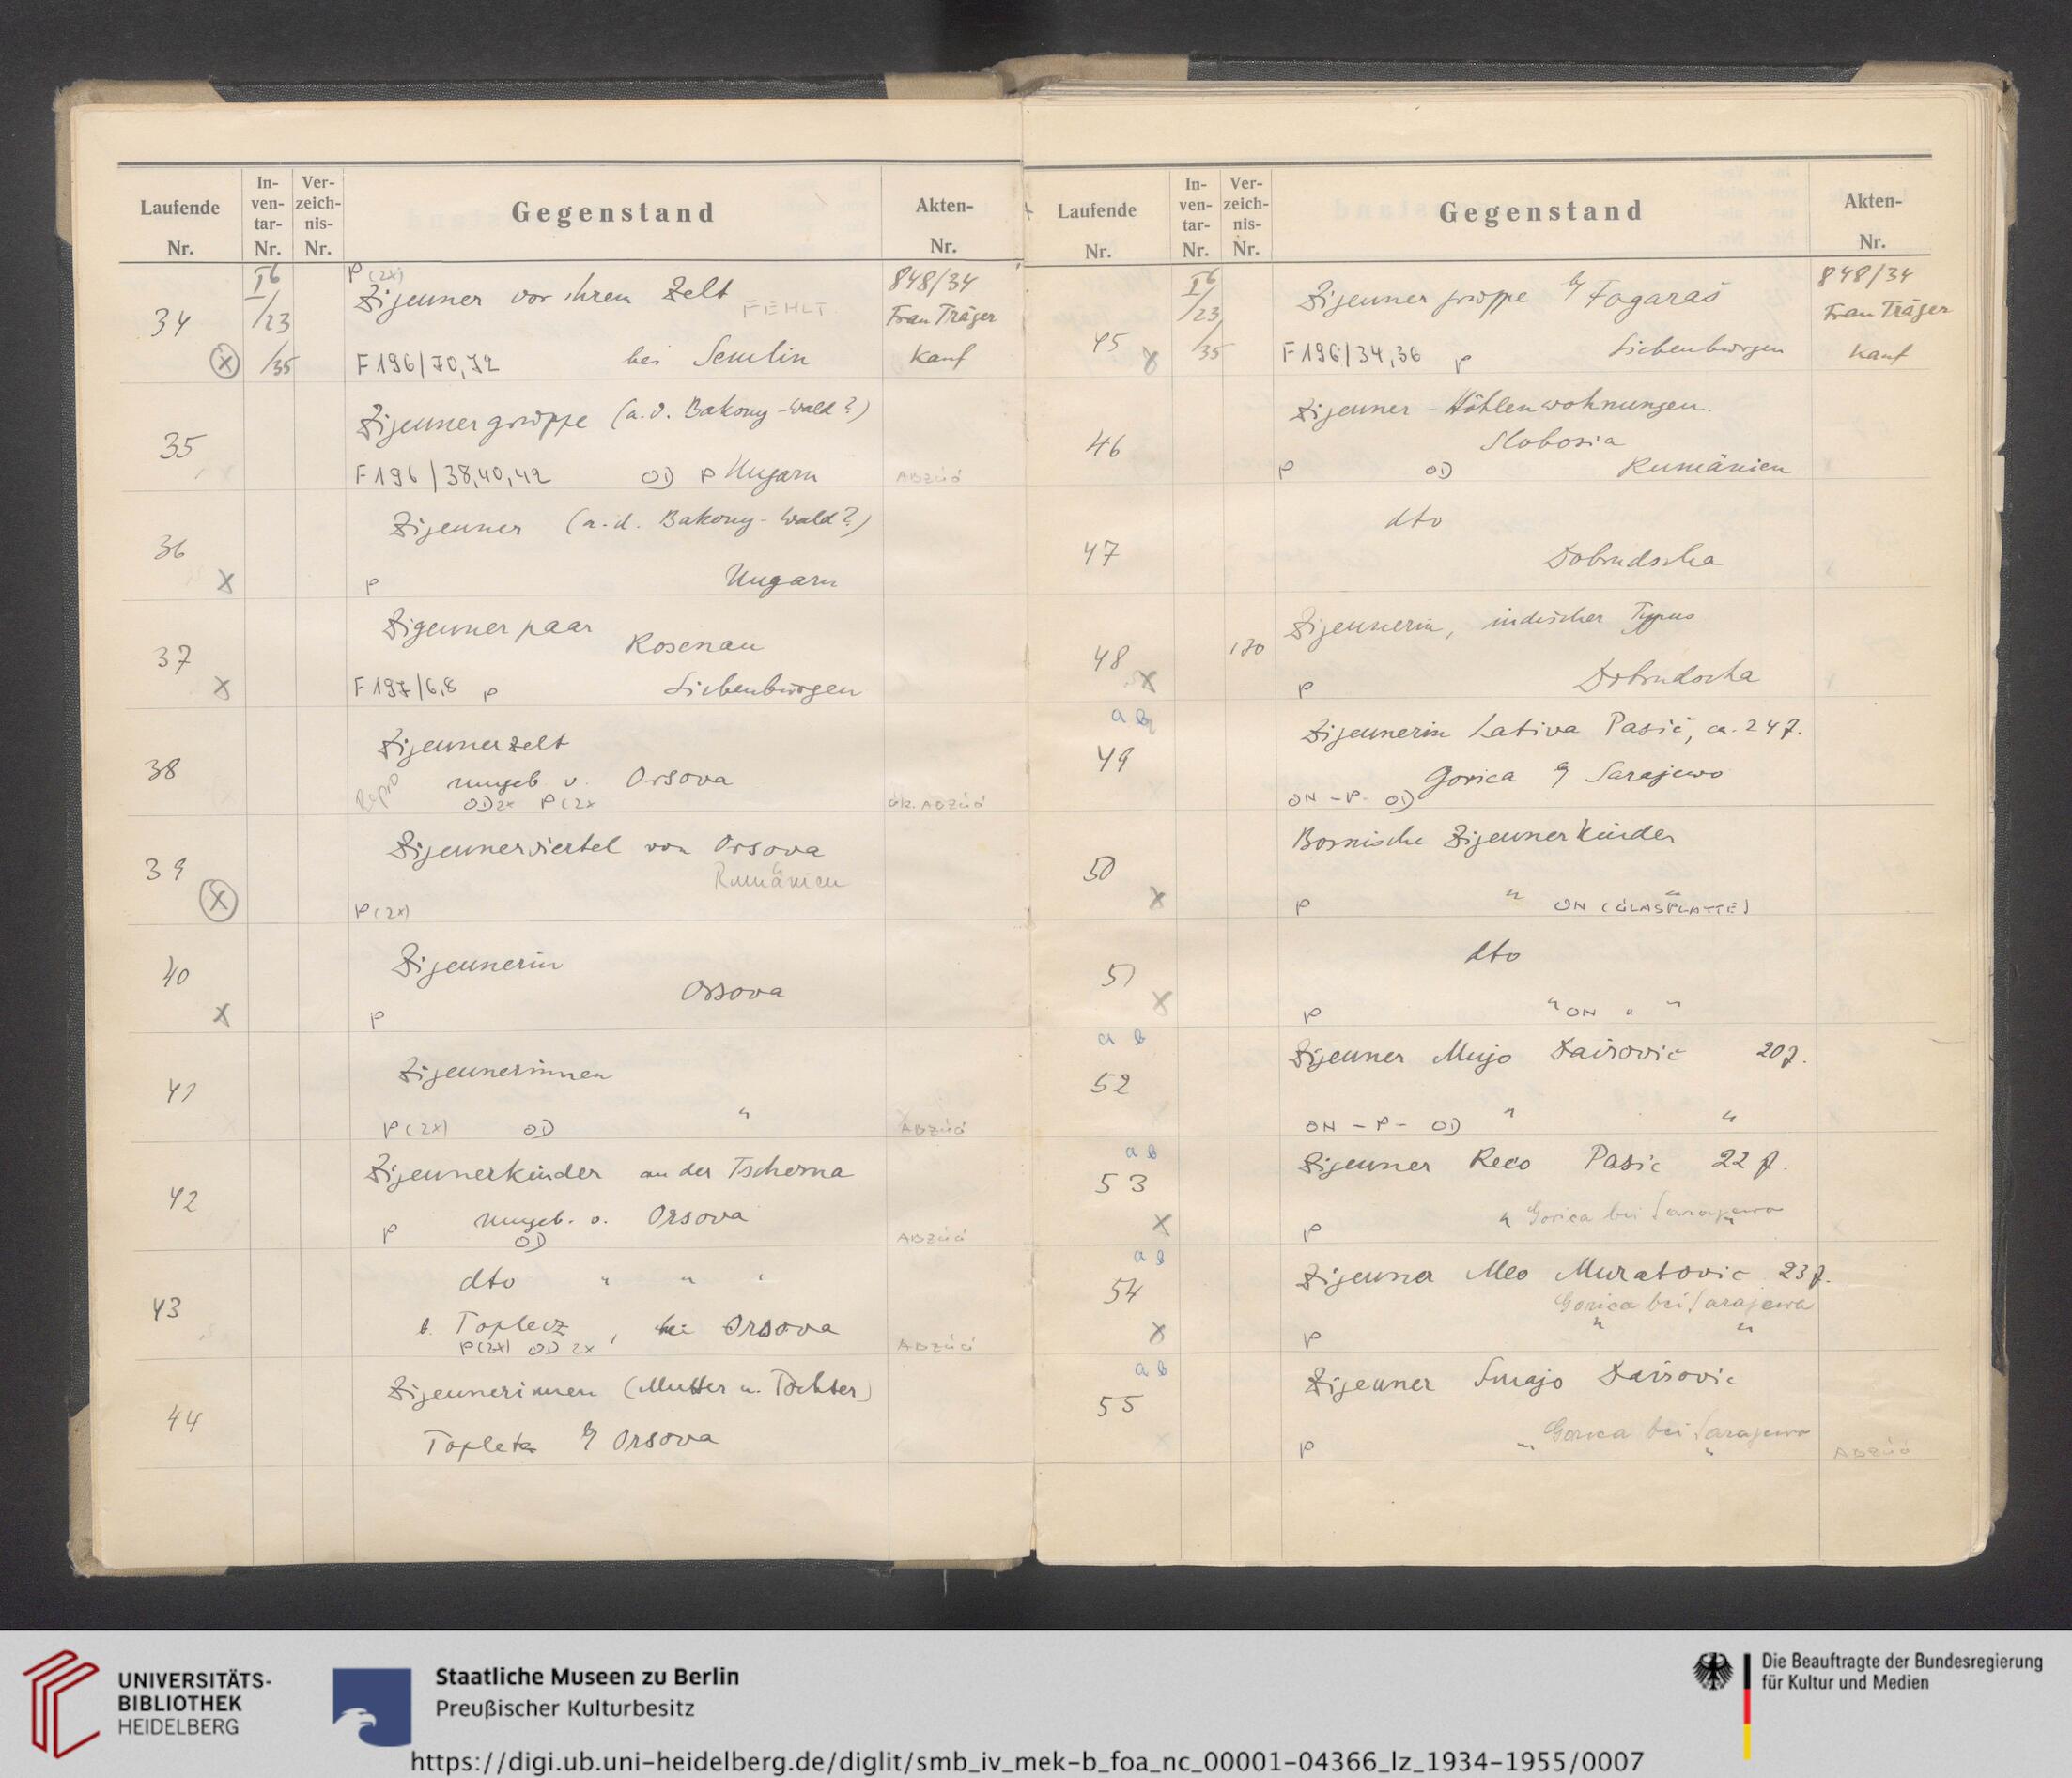 Laufende Nr.
In-ven-tar-Nr.
Ver-zeich-nis-Nr.
Gegenstand
Akten-Nr.
34
I6/23/35
P (2x)
Zigeuner vor ihrem Zelt FEHLT
F 196/70,72 bei Semlin
848/34
Frau Träger
Kauf
35
Zigeunergruppe (a.d. Bakony-Wald?)
F 196/38,40,42 OD P Ungarn
ABZÜG
36 x
Zigeuner (a.d. Bakony-Wald?)
P Ungarn
37 x
Zigeunerpaar
Rosenau
F 197/6,8 P Siebenbürgen
38
Zigeunerzelt
Repro Umgeb. v. Orsova
OD 2x P (2x
ABZÜG
39 x
Zigeunerviertel von Orsova
Rumänien
P (2x)
40 x
Zigeunerin
Orsova
P
41
Zigeunerinnen
P (2x) OD "
ABZÜG
42
Zigeunerkinder an der Tscherna
P Umgeb. v. Orsova
OD
ABZÜG
43
dto " " "
b. Toplecz, bei Orsova
P (2x) OD 2x
ABZÜG
44
Zigeunerinnen (Mutter u. Tochter)
Topletz b/ Orsova
Laufende Nr.
In-ven-tar-Nr.
Ver-zeich-nis-Nr.
Gegenstand
Akten-Nr.
45 x
I6/23/35
Zigeunergruppe b/ Fogaras
F 196/34,36 P Siebenbürgen
848/34
Frau Träger
Kauf
46
Zigeuner-Höhlenwohnungen.
Slobosia
P OD Rumänien
47
dto
Dobrudscha
48 x
170
Zigeunerin, indischer Typus
P Dobrudscha
a b
49
Zigeunerin Lativa Pasič, ca. 24 J.
Gorica b/ Sarajewo
ON - P - OD
50 x
Bosnische Zigeunerkinder
P " ON (GLASPLATTE)
51 x
dto
P " ON " "
a b
52
Zigeuner Mujo Dairovic 20 J.
ON - P - OD " "
a b
53 x
Zigeuner Reco Pasic 22 J.
P " Gorica bei Sarajewo "
a b
54 x
Zigeuner Meo Muratovic 23 J.
Gorica bei Sarajewo
P " "
a b
55
Zigeuner Smajo Dairovic
P " Gorica bei Sarajewo "
ABZÜG
UNIVERSITÄTS-
BIBLIOTHEK
HEIDELBERG
Staatliche Museen zu Berlin
Preußischer Kulturbesitz
Die Beauftragte der Bundesregierung
für Kultur und Medien
https://digi.ub.uni-heidelberg.de/diglit/smb_iv_mek-b_foa_nc_00001-04366_lz_1934-1955/0007